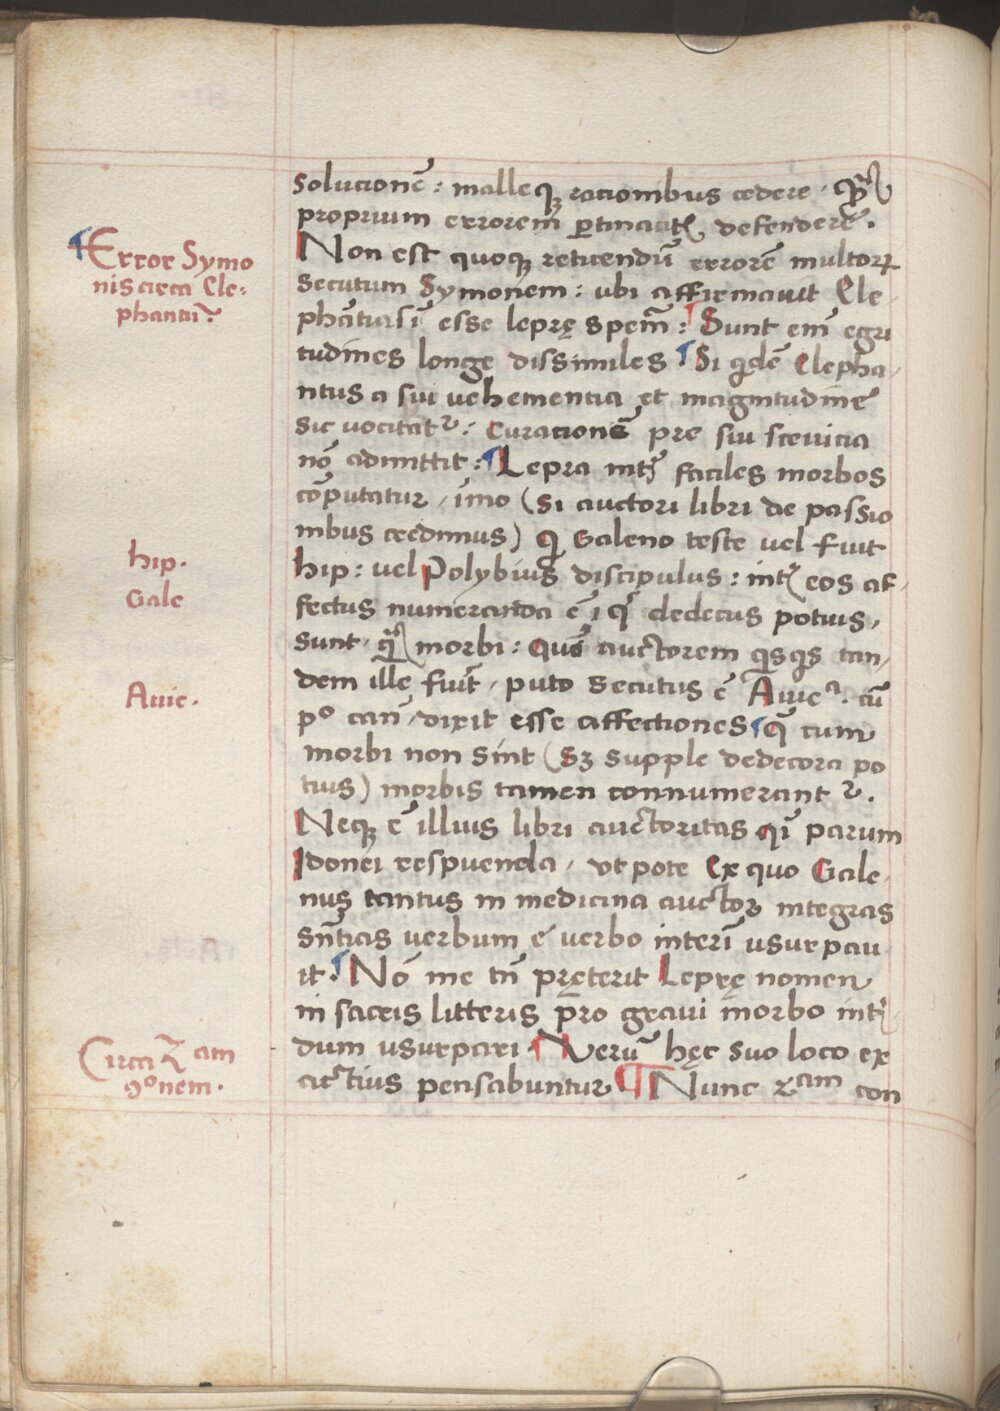 solucionē : malleqꝫ racionibus cedere · qᷓꝫ
proprium errorem ꝑtinacitꝭ defendere.
¶Error Symo
nis circa Ele-
phantiā
Non est quoqꝫ reticendū errorē multoꝝ
secutum Symonem : ubi affirmauit Ele
phātiasī esse leprę spem̄ : ¶Sunt em̄ egri
tudines longe dissimiles ¶Si qͥdē Elepha-
ntus a sui uehementia et magnitudine
sic uocitatᷣ : Curacionē pre sui sceuicia
nō admittit : ¶Lepra intꝭ faciles morbos
cōputatur, imo (si auctori libri de passio
nibus credimus) qͥ Galeno teste uel fuit
hip.
Gale
hip : uel Polybius discipulus : intꝭ eos af-
fectus numeranda ē, qͥ dedecus potius,
sunt · qᷓꝫ morbi : Quē auctorem qͥsqͥs tan,
Auic.
dem ille fuit, puto secutus ē Auicᵃ. cū
pº can̄, dixit esse affectiones ¶q̄ cum
morbi non sint (sꝫ supple dedecora po
tius) morbis tamen connumerantᷣ.
Neqꝫ ē illius libri auctoritas qͣi parum
Idonei respuenda, vt pote Ex quo Gale-
nus tantus in medicina auctor integras
sn̄tias uerbum e uerbo interī usurpau-
it. ¶Nō me tn̄ pręterit Leprę nomen
in sacris litteris pro graui morbo intꝭ-
dum usurpari ¶Verū hęc suo loco ex
Circa Rᵃᵐ
ꝯºnem.
actius pensabuntur ¶Nunc rᵃᵐ con